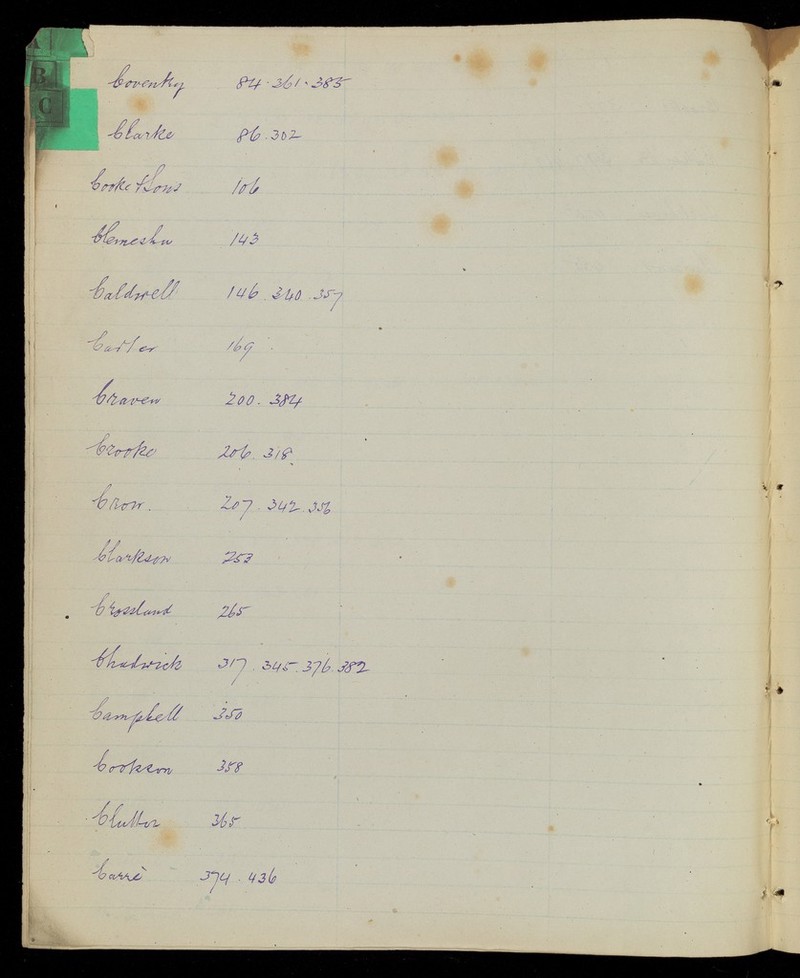 A
B
C
Coventry 84 . 361 . 385
Clarke 86 . 302
Cooke & Sons 106
Clemesha 143
Caldwell 146 . 340 . 357
Carter 169
Craven 200 . 384
Crooke 206 . 318
Crow . 207 . 342 . 356
Clarkson 253
Crossland 265
Chadwick 317 . 345 . 376 . 382
Campbell 350
Cookson 358
Clutton 365
Carrè 374 . 436